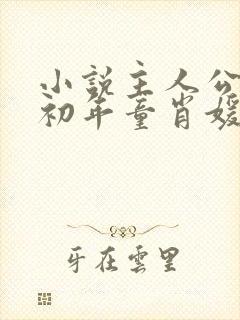 小说主人公
初年童肖媛
牙在雲里